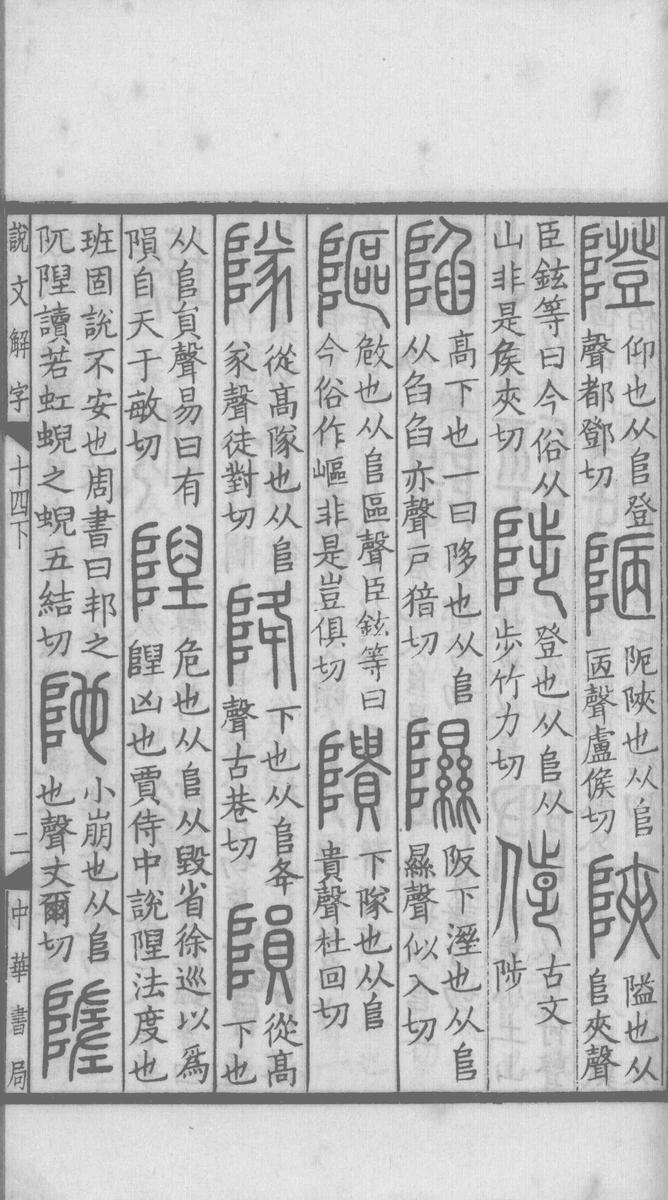 隥
仰也从𨸏登
聲都鄧切
陋
阸陜也从𨸏
㔷聲盧候切
陜
隘也从
𨸏夾聲
臣鉉等曰今俗从
山非是矦夾切
陟
登也从𨸏从
步竹力切
古文
陟
陷
高下也一曰陊也从𨸏
从臽臽亦聲戸切
隰
阪下溼也从𨸏
㬎聲似入切
䧢
敧也从𨸏區聲臣鉉等曰
今俗作嶇非是豈俱切
隤
下隊也从𨸏
貴聲杜回切
隊
從高隊也从𨸏
㒸聲徒對切
降
下也从𨸏夅
聲古巷切
隕
從高
下也
从𨸏員聲易曰有
隕自天于敏切
隉
危也从𨸏从毀省徐巡以爲
隉凶也賈侍中說隉法度也
班固說不安也周書曰邦之
阢隉讀若虹蜺之蜺五結切
阤
小崩也从𨸏
也聲丈爾切
隓
說文解字 十四下 二 中華書局